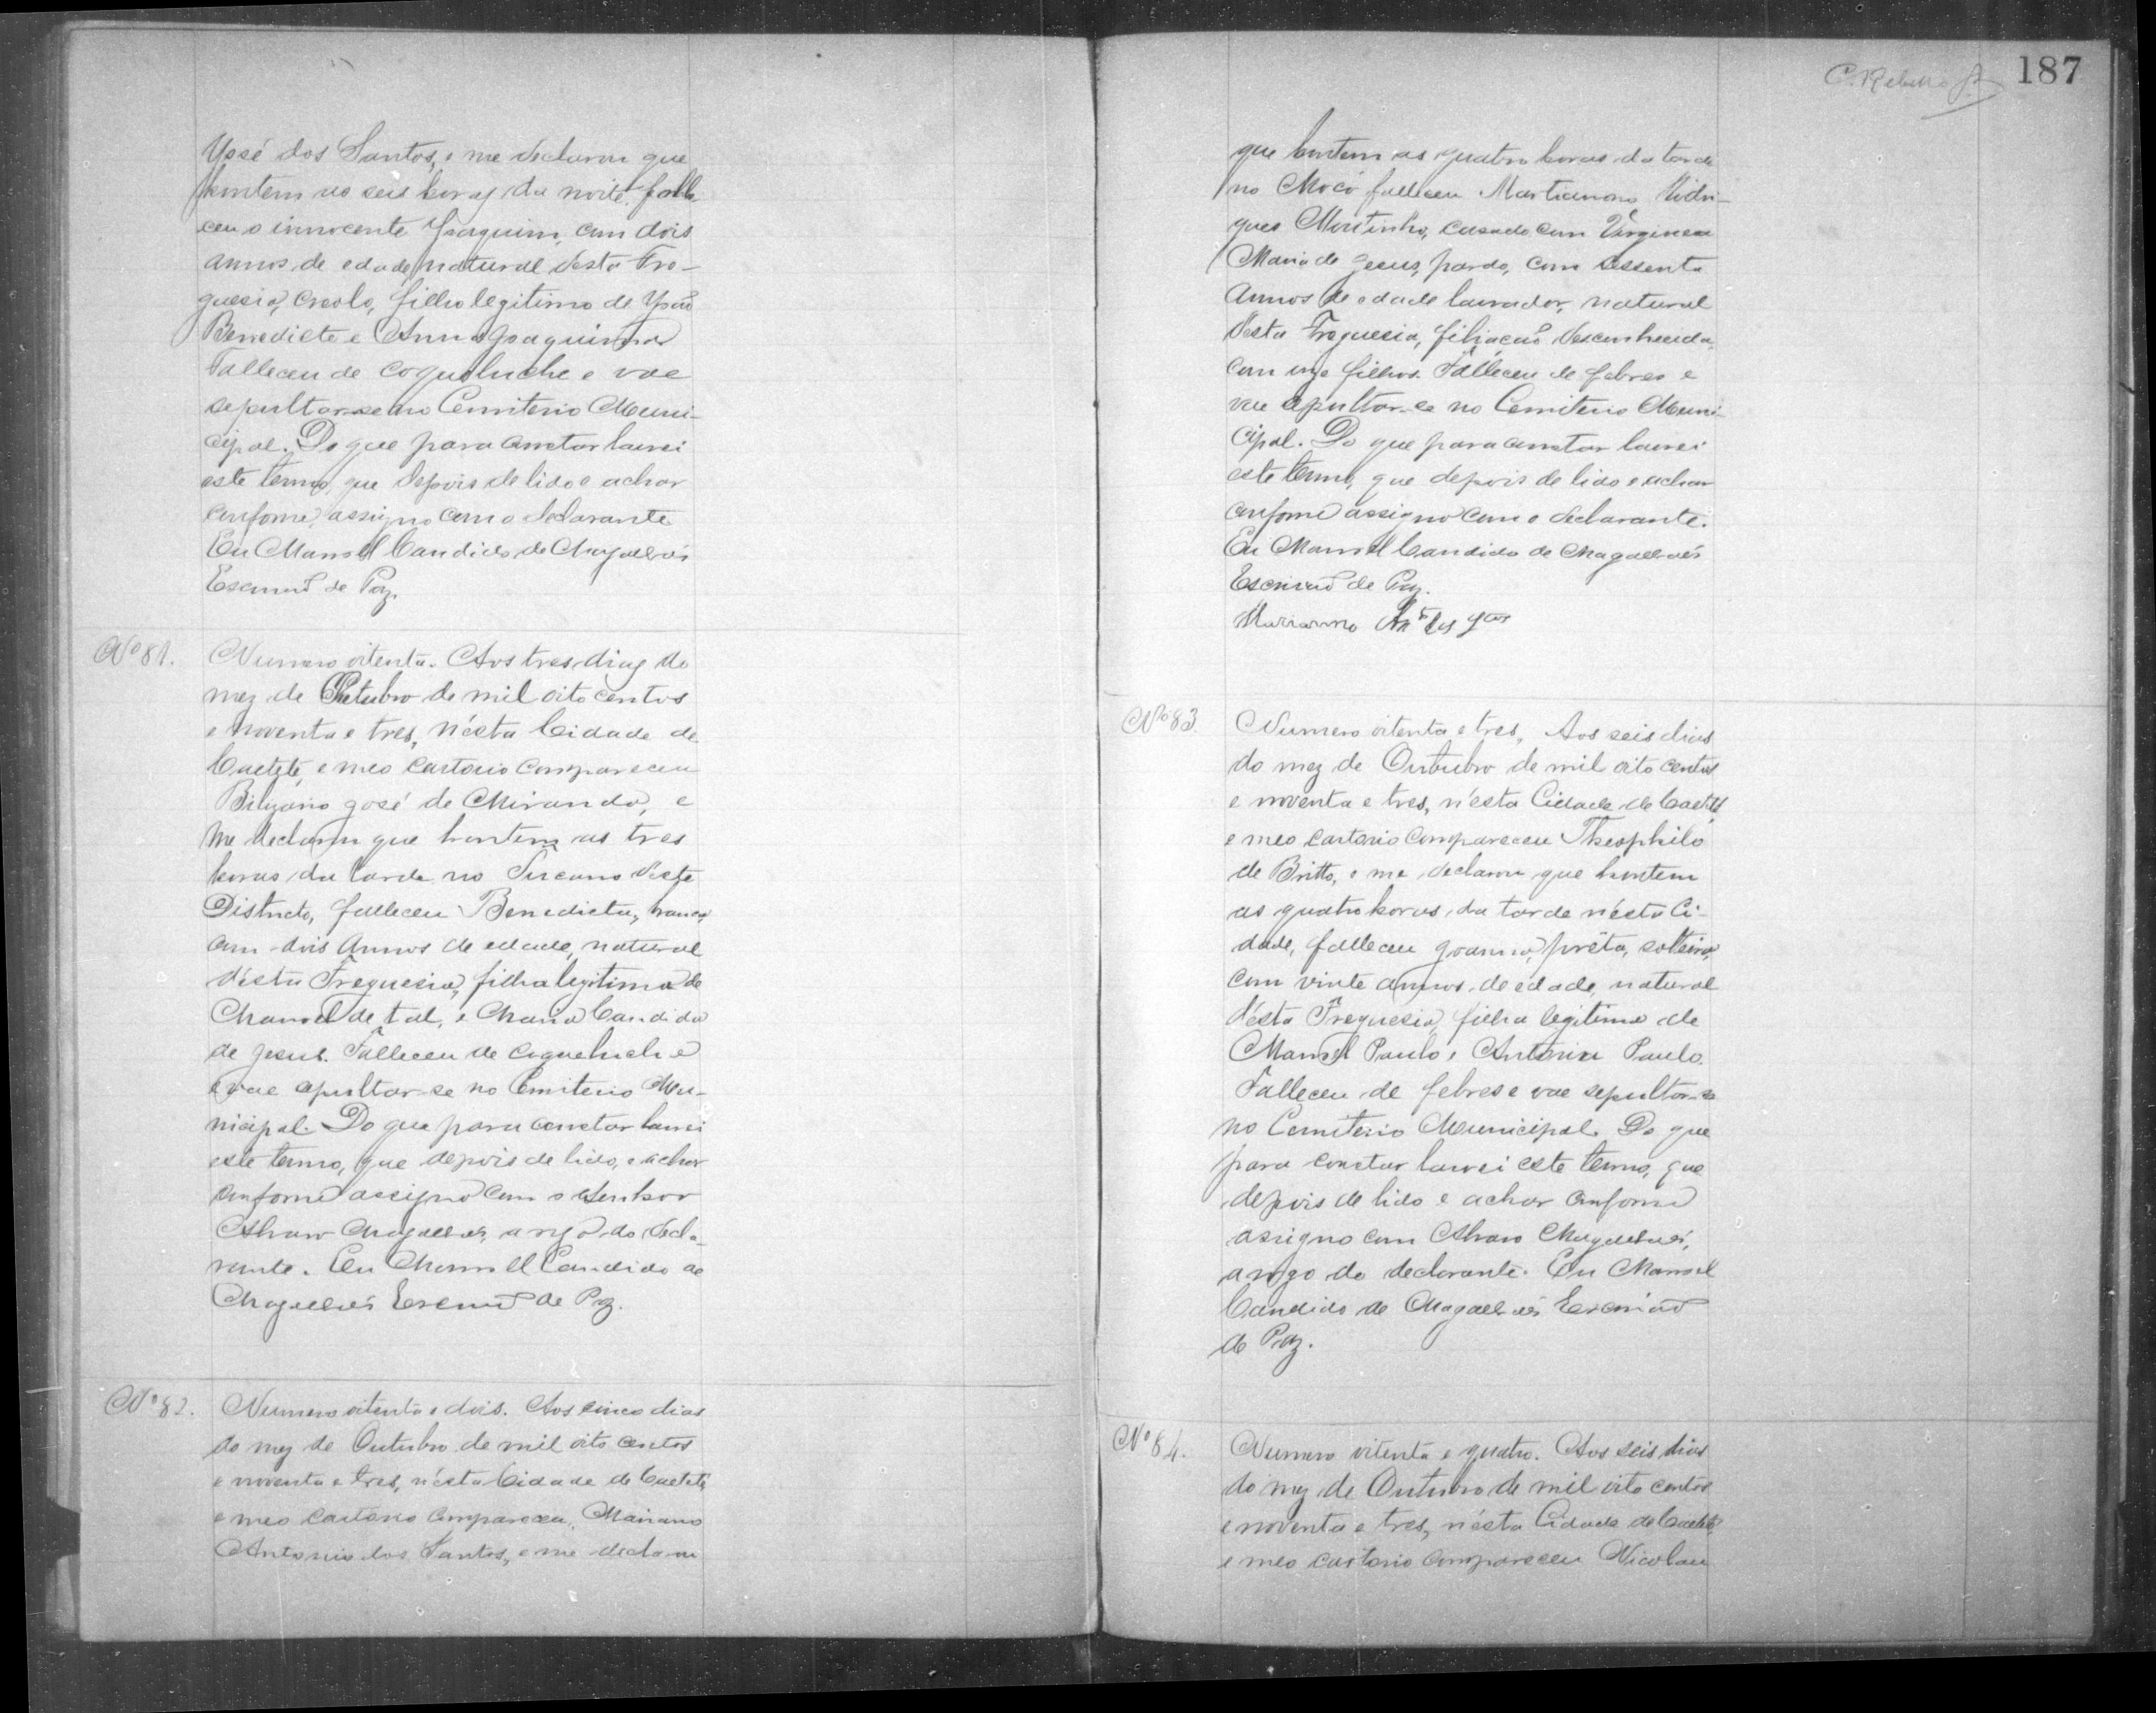 José dos Santos, e me declarou que
hontem as seis horas da noite falle
ceu o innocente Joaquim, com dois
annos de edade, natural desta Fre-
guesia, creolo, filho legitimo de João
Benedicto e Anna Joaquinna
Falleceu de coqueluche e vae
sepultar-se no Cemiterio Muni-
cipal. Do que para constar lavrei
este termo, que depois de lido e achar
conforme, assigno com o declarante.
Eu Manoel Candido de Magalhães
Escrivão de Paz.
Nº 81.
Numero oitenta. Aos tres dias do
mez de Outubro de mil oito centos
e noventa e tres, n'ésta Cidade de
Caeteté, e meo Cartorio compareceu
José de Miranda, e
me declarou que hontem as tres
horas da tarde no deste
Districto, falleceu Benedicta, branca,
com dois annos de edade, natural
d'ésta Freguesia, filha legitima de
Manoel de tal, e Maria Candida
de Jesus. Falleceu de coqueluche
e vae sepultar-se no Cemiterio Mu-
nicipal. Do que para constar lavrei
este termo, que depois de lido, e achar
conforme assigno com o senhor
Alvaro Magalhães, a rogo do decla-
rante. Eu Manoel Candido de
Magalhães Escrivão de Paz.
Nº 82.
Numero oitenta e dois. Aos cinco dias
do mez de Outubro de mil oito centos
e noventa e tres, n'ésta Cidade de Caeteté,
e meo Cartorio compareceu, Mariano
Antonio dos Santos, e me declarou
187
que hontem as quatro horas da tarde
no Mocó falleceu Martiano Rodri-
gues Moutinho, casado com Verginea
Maria de Jesus, pardo, com sessenta
annos de edade lavrador, natural
desta Freguesia, filiação desconhecida,
com filhos. Falleceu de febres e
vae sepultar-se no Cemiterio Muni-
cipal. Do que para constar lavrei
este termo, que depois de lido e achar
conforme assigno com o declarante.
Eu Manoel Candido de Magalhães
Escrivão de Paz.
Marianno
Nº 83.
Numero oitenta e tres. Aos seis dias
do mez de Outubro de mil oito centos
e noventa e tres, n'ésta Cidade de Caeteté,
e meo Cartorio compareceu Theophilo
de Britto, e me declarou que hontem
as quatro horas da tarde n'ésta Ci-
dade, falleceu Joanna, prêta, solteira,
com vinte annos de edade, natural
d'ésta Freguesia, filha legitima de
Manoel Paulo e Antonia Paula.
Falleceu de febres e vae sepultar-se
no Cemiterio Municipal. Do que
para constar lavrei este termo, que
depois de lido e achar conforme
assigno com Alvaro Magalhães,
a rogo do declarante. Eu Manoel
Candido de Magalhães Escrivão
de Paz.
Nº 84.
Numero oitenta e quatro. Aos seis dias
do mez de Outubro de mil oito centos
e noventa e tres, n'ésta Cidade de Caeteté,
e meo Cartorio compareceu Nicolau